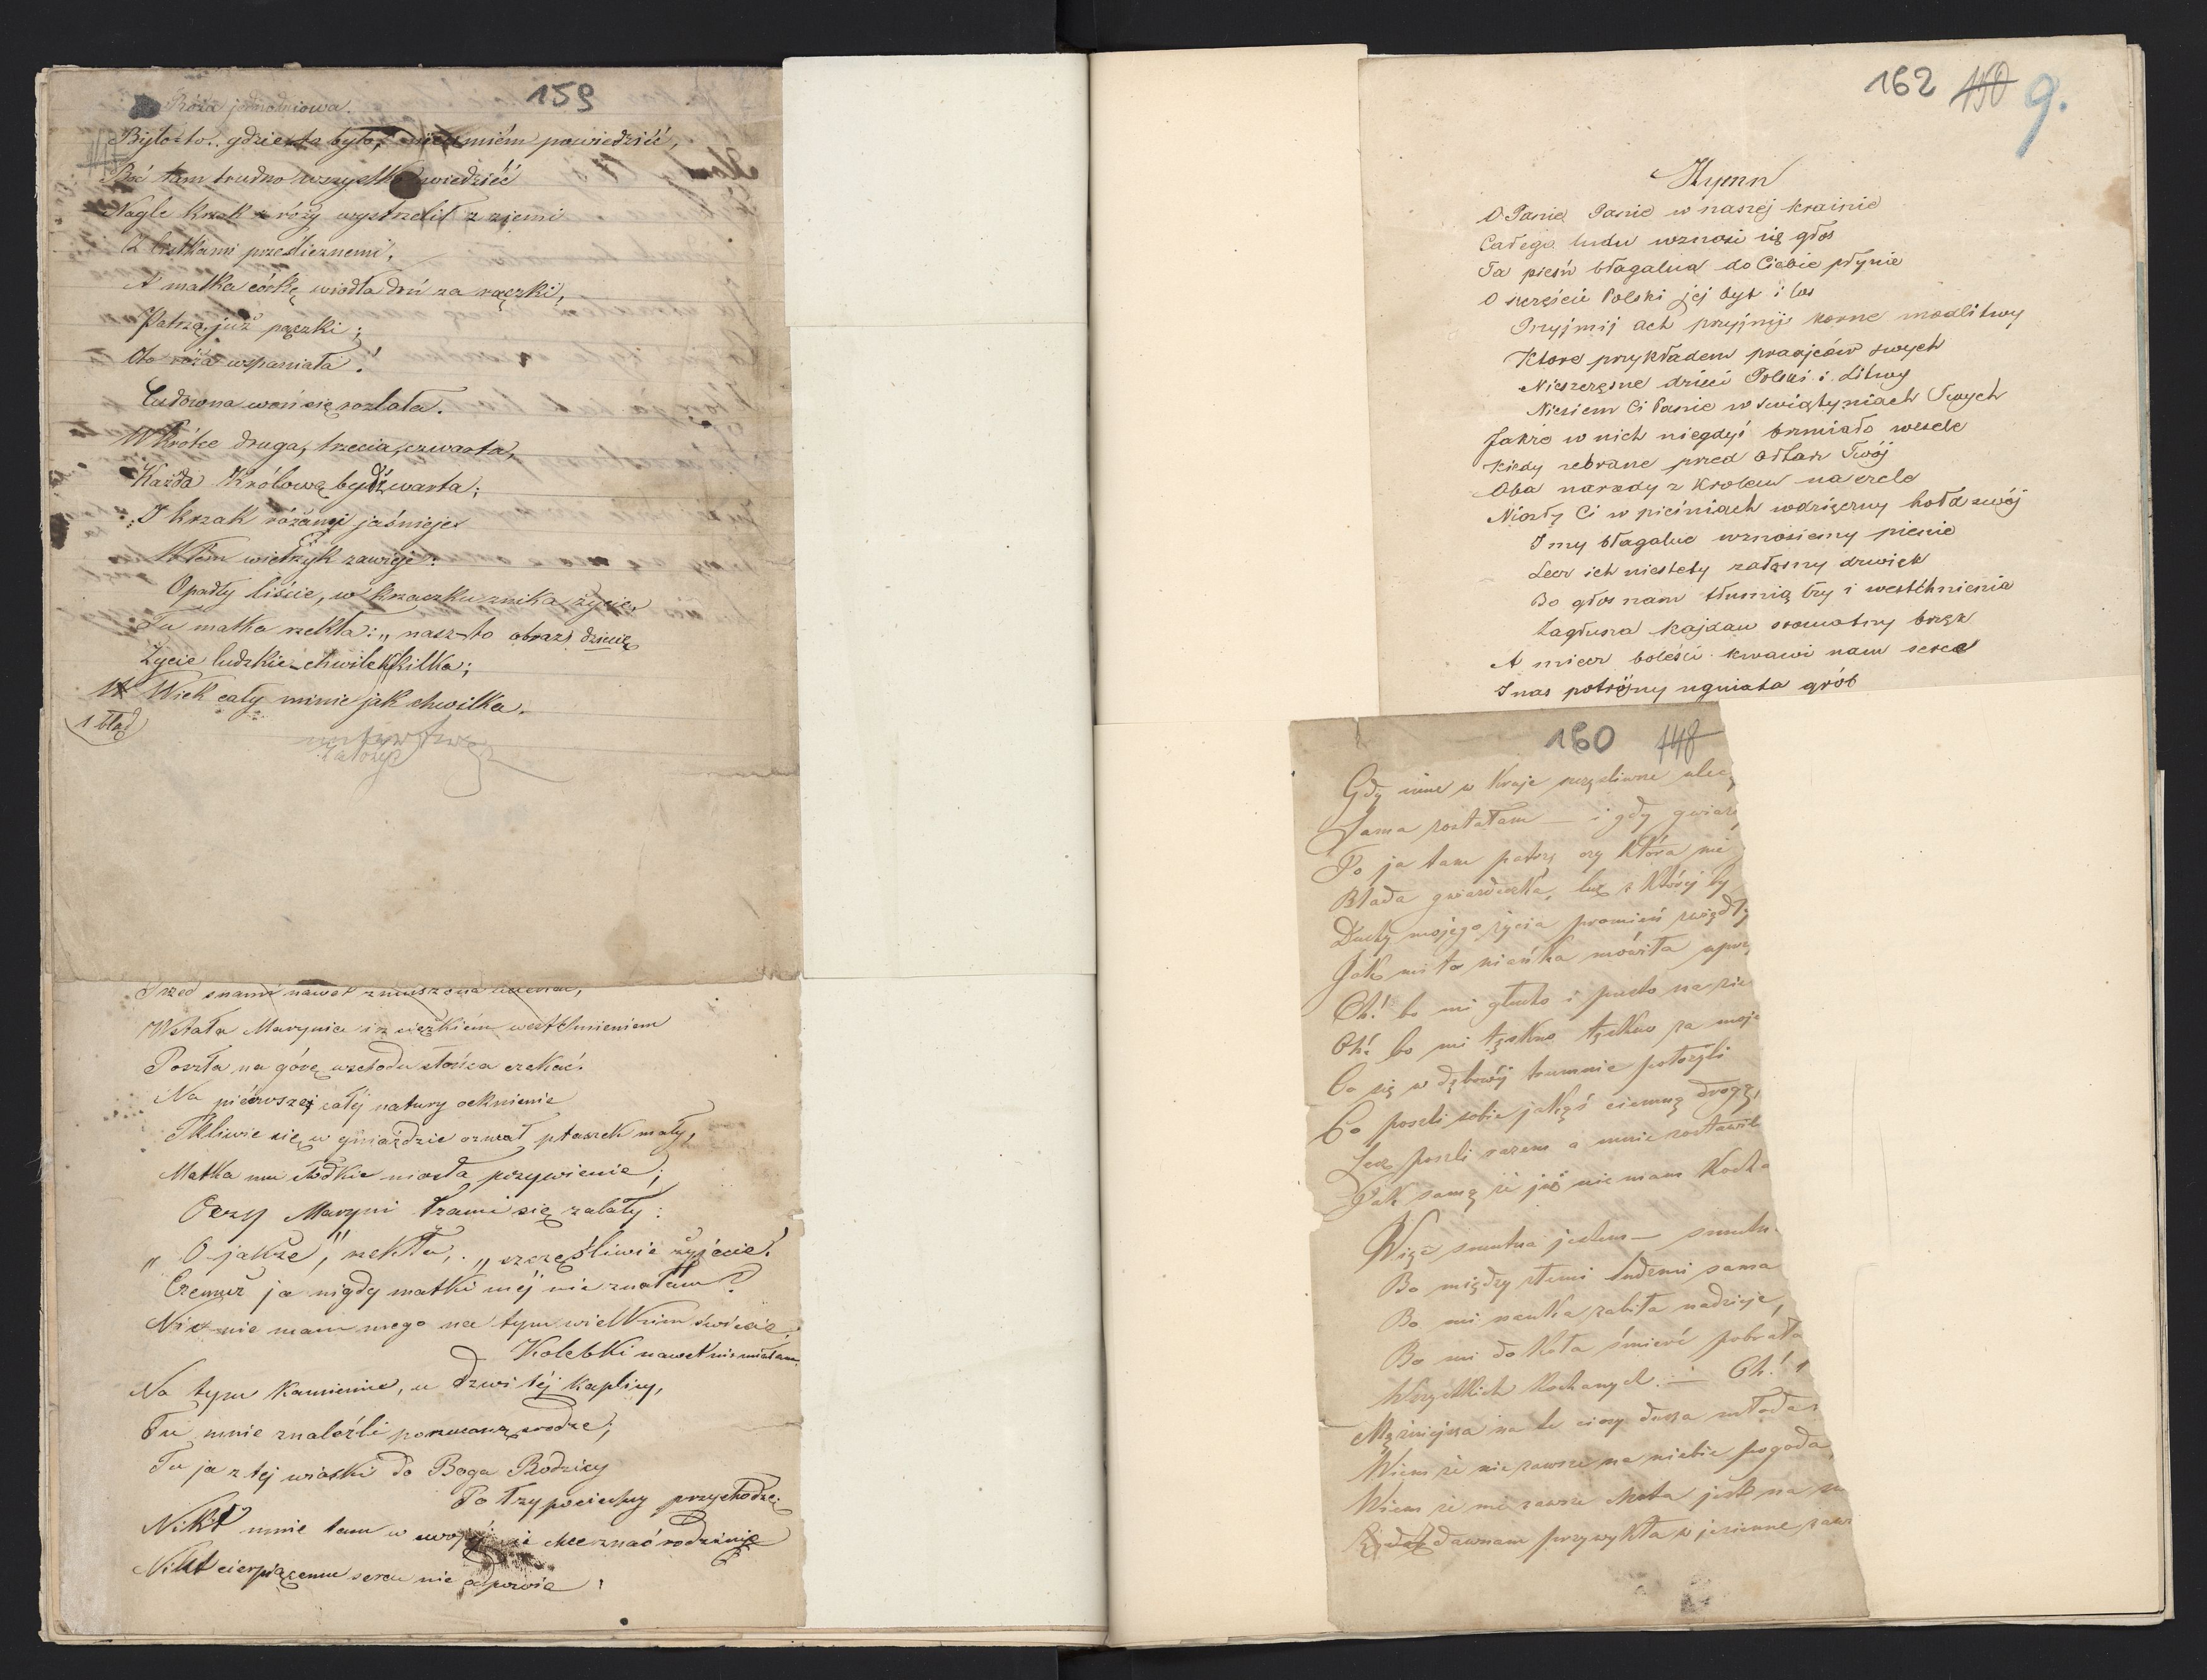 159
Róża jednodniowa.
Było-to.. gdzie to było, nie umiém powiedziéć,
Boć tam trudno wszystko zwiedziéć
Nagle krzak z róży wystrzelił z ziemi
Z listkami prześlicznemi,
A matka córkę wiodła doń za rączki,
Patrzą, już pączki;
Oto róża wspaniała!
Cudowna woń się rozlała.
Wkrótce druga, trzecia, czwarta,
Każda Królową bydź warta;
I krzak różany jaśnieje
Wtém wietrzyk zawieje:
Opadły liście, w krzaczku znika życie,
Tu matka rzekła: „nasz-to obraz dziecię
Życie ludzkie-chwilek kilka;
Wiek cały minie jak chwilka.
1 błąd
Przed snami nawet zmuszona uciekać,
Wstała Marynia i z ciężkiém westchnieniem
Poszła na górę wschodu słońca czekać.
Na piérwszej całéj natury ocknienie
Tkliwie się w gniaździe ozwał ptaszek mały,
Matka mu słodkie niosła pożywienie;
Oczy Maryni łzami się zalały:
„O jakże," rzekła, „szczęśliwie żyjecie!
Czemuż ja nigdy matki méj nie znałam?
Nic nie mam mego na tym wielkim świecie,
Kolebki nawet nie miałam
Na tym kamieniu, u drzwi téj kaplicy,
Tu mnie znaleźli porzuconą srodze;
Tu ja z téj wioski do Boga Rodzicy
Po łzy pociechy przychodzę;
Nikt mnie tam w swojéj nie chce znać rodzinie
Nikt cierpiącemu sercu nie odpowie
162 150 9.
Hymn
O Panie Panie w naszej krainie
Całego ludu wznosi się głos
Ta pieśń błagalna do Ciebie płynie
O szczęście Polski jej byt i los
Przyjmij ach przyjmij korne modlitwy
Które przykładem praojców swych
Nieszczęsne dzieci Polski i Litwy
Niesiem Ci Panie w swiątyniach Twych
Jakże w nich niegdyś brzmiało wesele
Kiedy zebrane przed ołtarz Twój
Oba narody z Krolem na czele
Niosły Ci w pieśniach wdzięczny hołd swój
I my błagalne wznosiemy pienie
Lecz ich niestety żałosny dzwięk
Bo głos nam tłumią łzy i westchnienia
Zagłusza kajdan sromotny brzęk
A miecz boleści krwawi nam serce
I nas potrójny ugniata grób
160 148
Gdy inne w kraje szczęśliwne ulec
Sama zostałam — i gdy gwiaz
To ja tam patrzę czy która nie
Blada gwiazdeczka, lub z której by
Duchy mojego życia promień zwiędły
Jak mi to niańka mówiła uprz
Oh! bo mi głucho i pusto na zie
Oh! bo mi tęskno tęskno za moje
Co się w dębowéj trumnie położyli
Co poszli sobie jakąś ciemną drogą,
Lecz poszli razem a mnie zostawili
Tak samą że już nie mam kocha
Więc smutna jestem — smutn
Bo między złemi ludźmi sama
Bo mi nauka zabiła nadzieje,
Bo mi do koła śmierć pobrała
Wszystkich kochanych. — Oh!
Mężniejsza na te ciosy dusza młoda
Wiem że nie zawsze na niebie pogoda
Wiem że nie zawsze
dawnam przywykła w jesienne